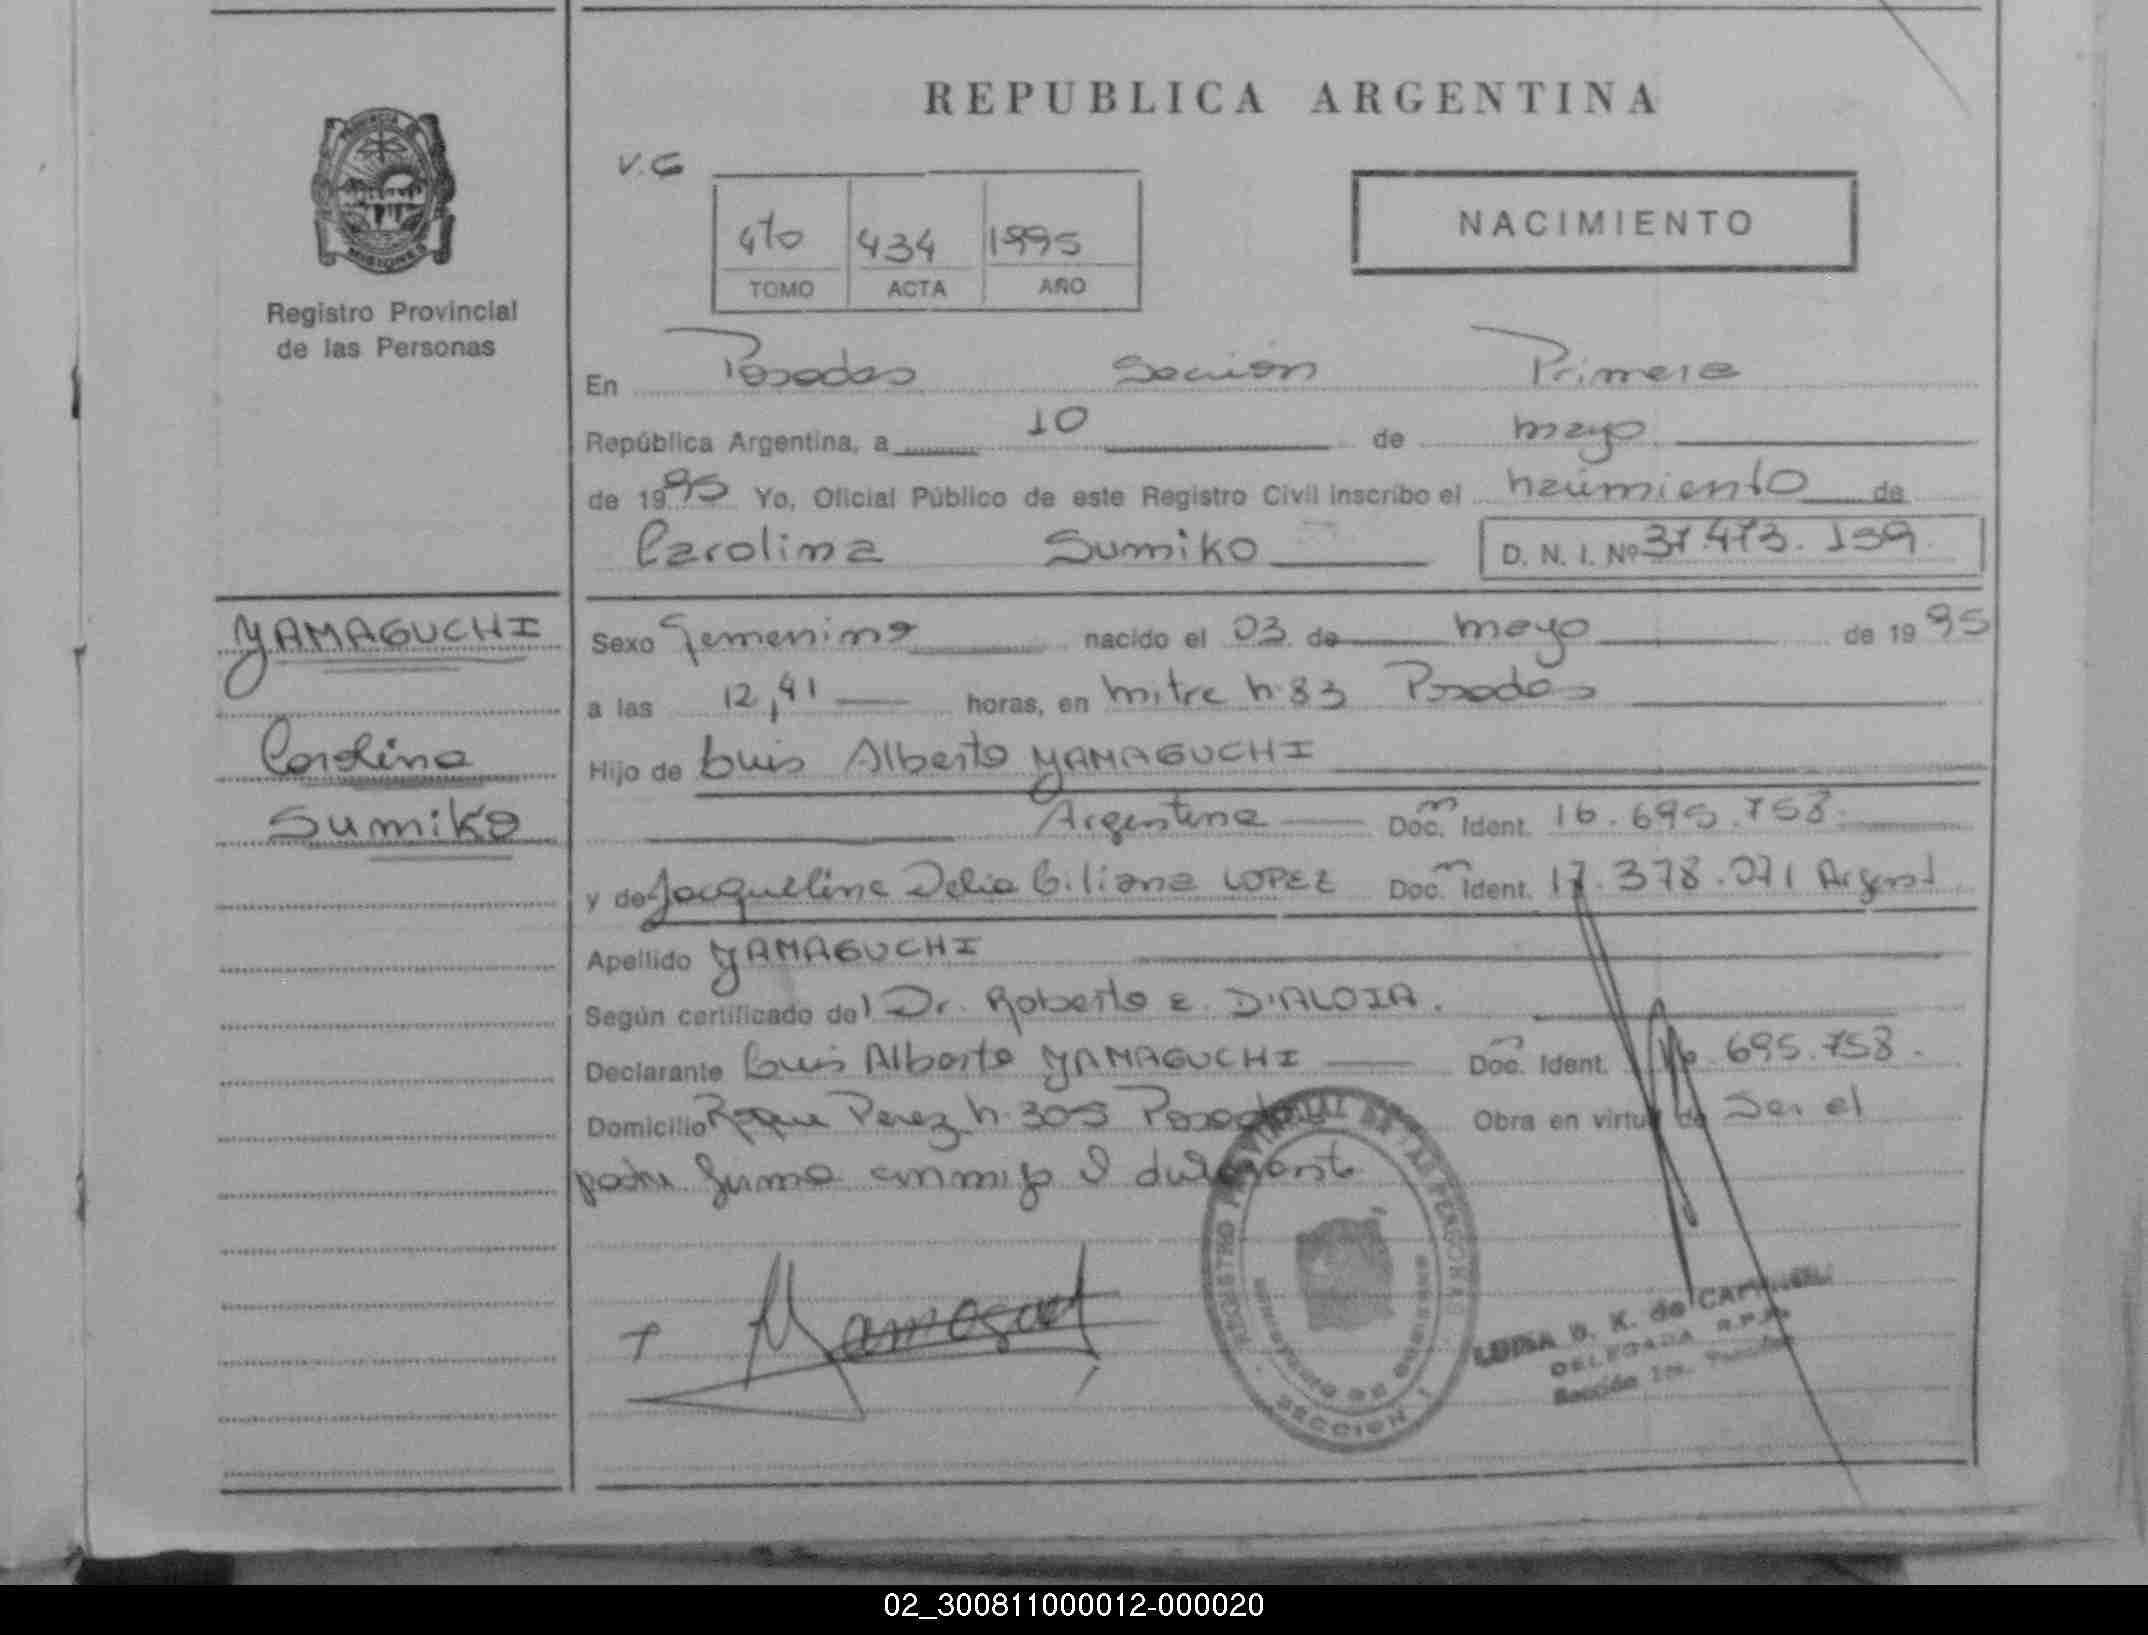 REPUBLICA ARGENTINA
PROVINCIA DE
MISIONES
Registro Provincial
de las Personas
V.G
4to 434 1995
TOMO ACTA AÑO
NACIMIENTO
En Posadas Sección Primera
República Argentina, a 10 de mayo
de 1995 Yo, Oficial Público de este Registro Civil inscribo el nacimiento de
Carolina Sumiko D. N. I. Nº 37.473.159.
YAMAGUCHI
Carolina
Sumiko
Sexo Femenino nacido el 03 de mayo de 1995
a las 12,41 horas, en Mitre n. 83 Posadas
Hijo de Luis Alberto YAMAGUCHI
Argentina Doc. Ident. 16.695.758.
y de Jacqueline Delia Liliana LOPEZ Doc. Ident. 17.378.071 Argent
Apellido YAMAGUCHI
Según certificado del Dr. Roberto E. D'ALOIA.
Declarante Luis Alberto YAMAGUCHI Doc. Ident. 16.695.758.
Domicilio Roque Perez n. 305 Posadas Obra en virtud de Ser el
padre firma conmigo el declarante
REGISTRO PROVINCIAL DE LAS PERSONAS
MINISTERIO DE GOBIERNO
SECCION 1
LUISA B. K. de
DELEGADA R.P.P.
Sección 1ra. Posadas
02_300811000012-000020